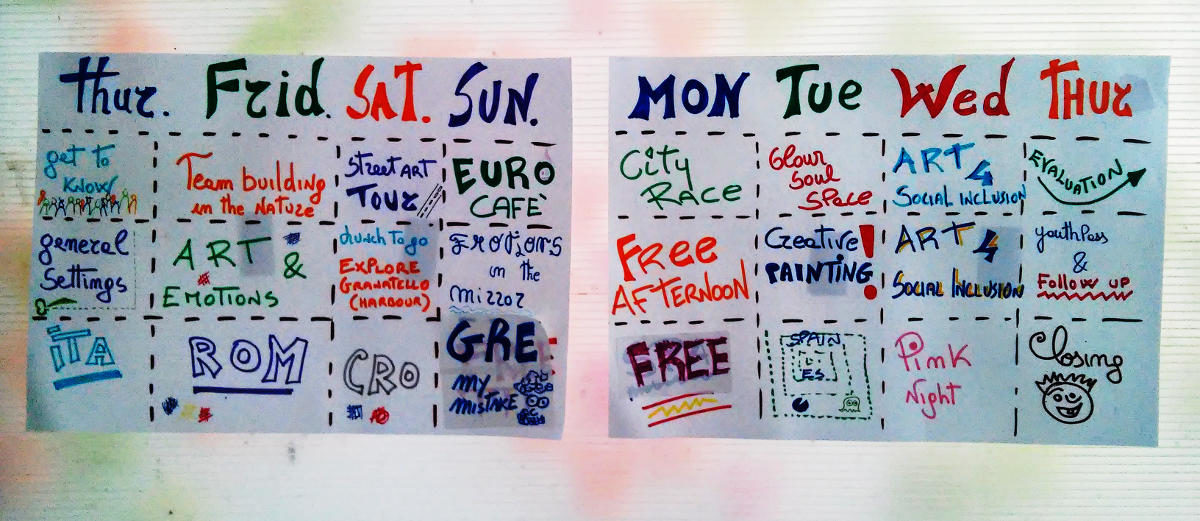 Thur. Frid. SAT. SUN.
get to
know
Team building
in the NATuze
Street ART
Tour
EURO
CAFÈ
general
Settings
ART &
EMOTIONS
Lunch To go
EXPLORE
GRANATELLO
(HARBOUR)
EMOTIONS
in the
Mirror
ITA
ROM
CRO
GRE
my
mistake
MON Tue Wed THUR
City
RACE
Colour
Soul
Space
ART 4
Social inclusion
EVALUATION
FREE
AFTERNOON
Creative!
PAINTING
ART 4
Social Inclusion
youthPass
&
Follow up
FREE
SPAIN
ES.
Pink
Night
Closing